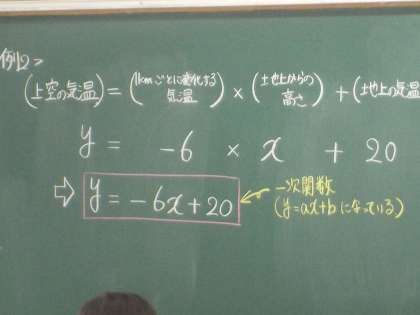 例2>
(上空の気温) = (1kmごとに変化する気温) × (土地上からの高さ) + (土地上の気温
y = -6 × x + 20
⇨ y = -6x+20 ← 一次関数
(y=ax+b になっている)